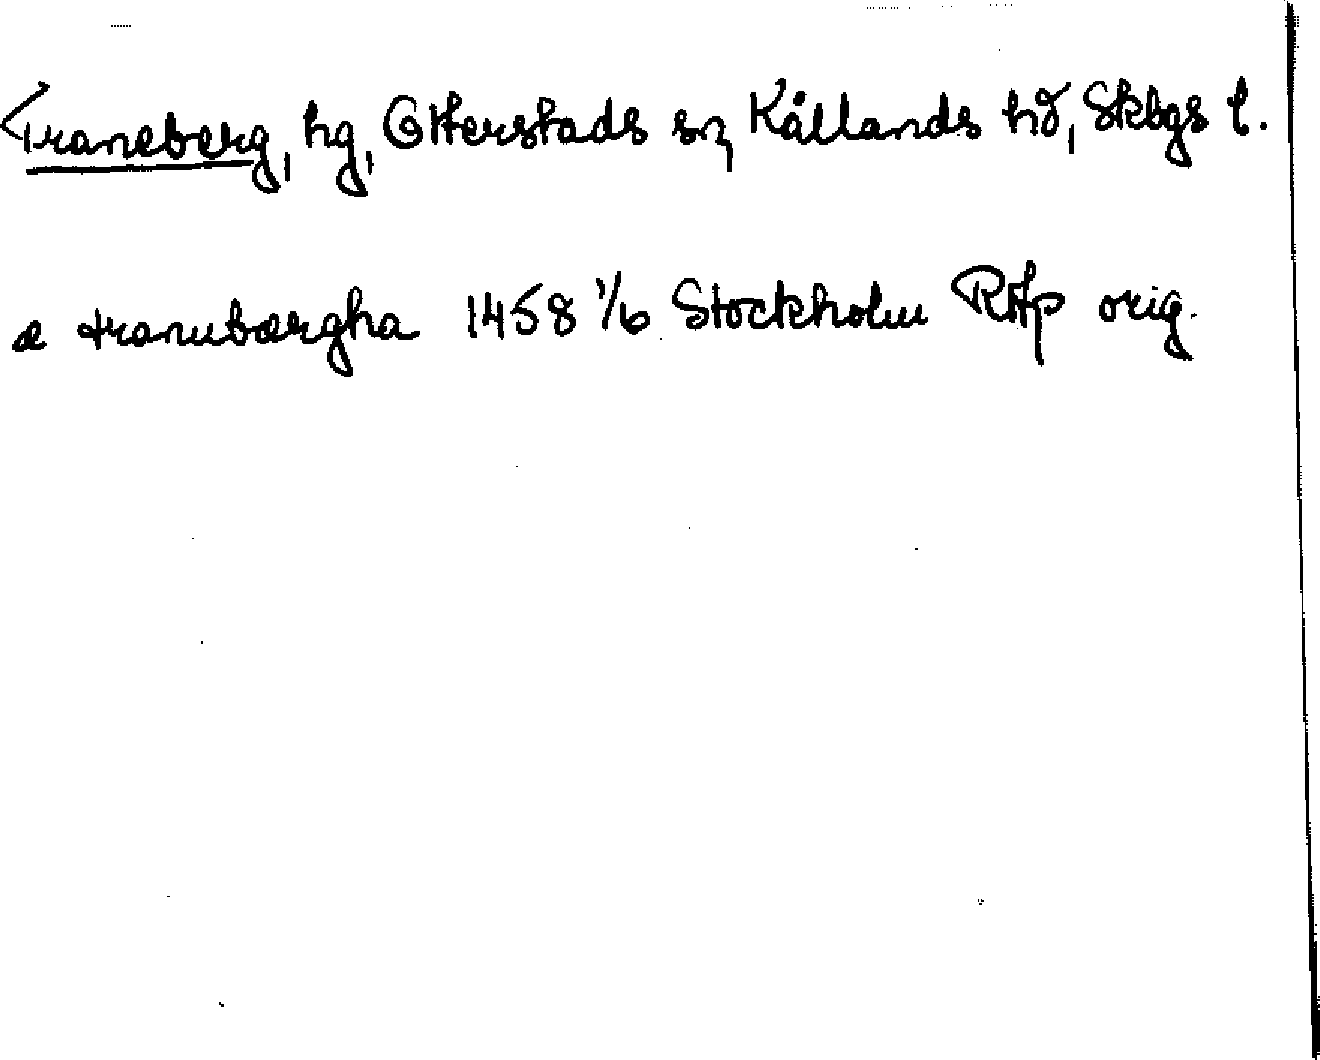 Traneberg, hg, Otterstads sn, Kållands hd, Skbgs l.
a tranubærgha 1458 1/6 Stockholm RAp orig.